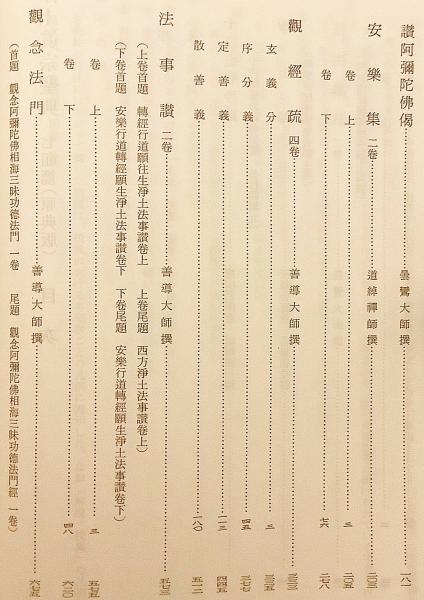 讃阿彌陀佛偈……曇鸞大師撰……一八一
安樂集 二卷……道綽禪師撰……二〇三
卷上……三……二〇五
卷下……七六……二七八
觀經疏 四卷……善導大師撰……三三三
玄義分……三……三三五
序分義……四五……三七七
定善義……一一三……四四五
散善義……一八〇……五一二
法事讃 二卷……善導大師撰……五七三
(上卷首題 轉經行道願往生淨土法事讃卷上 上卷尾題 西方淨土法事讃卷上)
(下卷首題 安樂行道轉經願生淨土法事讃卷下 下卷尾題 安樂行道轉經願生淨土法事讃卷下)
卷上……三……五七五
卷下……四八……六二〇
觀念法門……善導大師撰……六七五
(首題 觀念阿彌陀佛相海三昧功德法門 一卷 尾題 觀念阿彌陀佛相海三昧功德法門經 一卷)